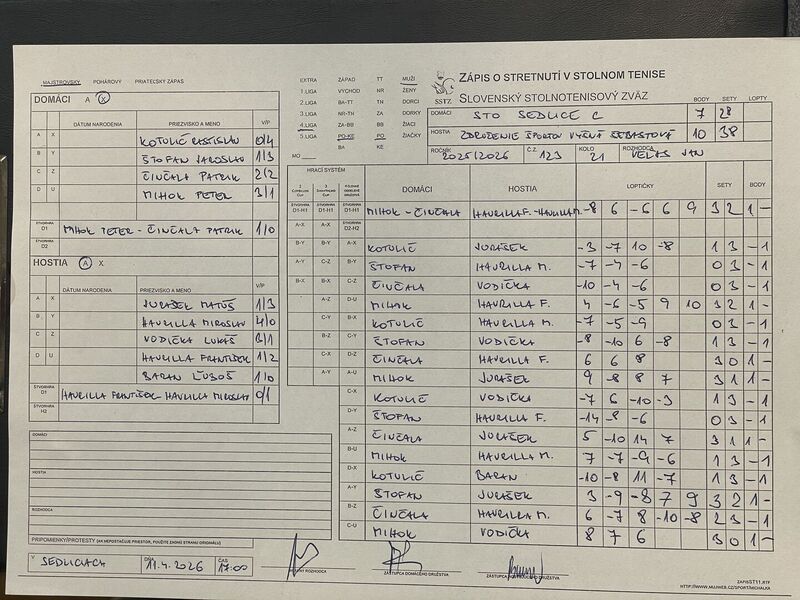 MAJSTROVSKÝ POHÁROVÝ PRIATEĽSKÝ ZÁPAS
DOMÁCI A X
DÁTUM NARODENIA PRIEZVISKO A MENO V/P
A X KOTULIČ RASTISLAV 0/4
B Y ŠTOFAN JAROSLAV 1/3
C Z ČINČALA PATRIK 2/2
D U MIHOK PETER 3/1
ŠTVORHRA D1 MIHOK PETER - ČINČALA PATRIK 1/0
ŠTVORHRA D2
HOSTIA A X
DÁTUM NARODENIA PRIEZVISKO A MENO V/P
A X JURAŠEK MATÚŠ 1/3
B Y HAVRILLA MIROSLAV 4/0
C Z VODIČKA LUKÁŠ 3/1
D U HAVRILLA FRANTIŠEK 1/2
BARAN ĽUBOŠ 1/0
ŠTVORHRA D1 HAVRILLA FRANTIŠEK - HAVRILLA MIROSLAV 0/1
ŠTVORHRA H2
DOMÁCI
HOSTIA
ROZHODCA
PRIPOMIENKY/PROTESTY (AK NEPOSTAČUJE PRIESTOR, POUŽITE ZADNÚ STRANU ORIGINÁLU)
V SEDLICIACH DŇA 11.4.2026 ČAS 17:00
EXTRA ZÁPAD TT MUŽI
1.LIGA VÝCHOD NR ŽENY
2.LIGA BA-TT TN DORCI
3.LIGA NR-TN ZA DORKY
4.LIGA ZA-BB BB ŽIACI
5.LIGA PO-KE PO ŽIAČKY
BA KE
MO
SSTZ
ZÁPIS O STRETNUTÍ V STOLNOM TENISE
SLOVENSKÝ STOLNOTENISOVÝ ZVÄZ
BODY SETY LOPTY
DOMÁCI STO SEDLICE C 7 28
HOSTIA ZDRUŽENIE ŠPORTOV VYŠNÁ ŠEBASTOVÁ 10 38
ROČNÍK 2025/2026 Č.Z. 123 KOLO 21 ROZHODCA VELAS JAN
HRACÍ SYSTÉM DOMÁCI HOSTIA LOPTIČKY SETY BODY
ŠTVORHRA D1-H1 ŠTVORHRA D1-H1 ŠTVORHRA D1-H1 MIHOK - ČINČALA HAVRILLA F. - HAVRILLA M. -8 6 -6 6 9 3 2 1 -
A-X A-X ŠTVORHRA D2-H2
B-Y B-Y A-X KOTULIČ JURAŠEK -3 -7 10 -8 1 3 - 1
A-Y C-Z B-Y ŠTOFAN HAVRILLA M. -7 -4 -6 0 3 - 1
B-X B-X C-Z ČINČALA VODIČKA -10 -4 -6 0 3 - 1
A-Z D-U MIHOK HAVRILLA F. 4 -6 -5 9 10 3 2 1 -
C-Y B-X KOTULIČ HAVRILLA M. -7 -5 -9 0 3 - 1
B-Z C-Y ŠTOFAN VODIČKA -8 -10 6 -8 1 3 - 1
C-X D-Z ČINČALA HAVRILLA F. 6 6 8 3 0 1 -
A-Y A-U MIHOK JURAŠEK 9 -8 8 7 3 1 1 -
C-X KOTULIČ VODIČKA -7 6 -10 -3 1 3 - 1
D-Y ŠTOFAN HAVRILLA F. -14 -8 -6 0 3 - 1
A-Z ČINČALA JURAŠEK 5 -10 14 7 3 1 1 -
B-U MIHOK HAVRILLA M. 7 -7 -9 -6 1 3 - 1
D-X KOTULIČ BARAN -10 -8 11 -7 1 3 - 1
A-Y ŠTOFAN JURAŠEK 3 -9 -8 7 9 3 2 1 -
B-Z ČINČALA HAVRILLA M. 6 -7 8 -10 -8 2 3 - 1
C-U MIHOK VODIČKA 8 7 6 3 0 1 -
ZÁSTUPCA DOMÁCEHO DRUŽSTVA
ZÁPISST11.RTF
HTTP://WWW.MUJWEB.CZ/SPORT/MICHALKA